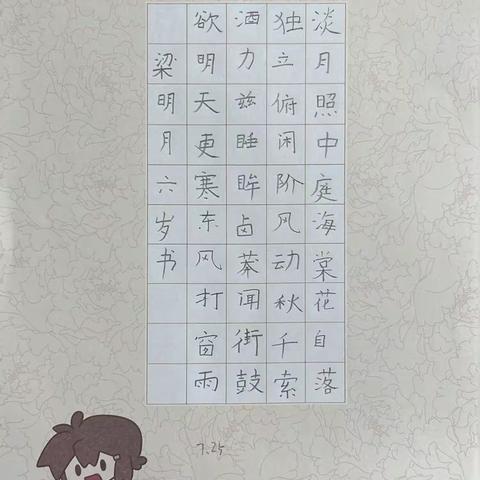 淡月照中庭海棠花自落
独立俯闲阶风动秋千索
酒力兹睡眸卤莽闻街鼓
欲明天更寒东风打窗雨
梁明月六岁书
7.25